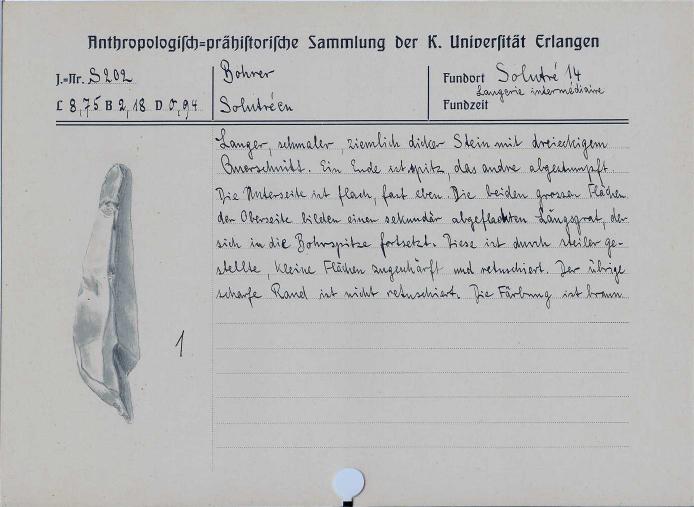 Anthropologisch=prähistorische Sammlung der K. Universität Erlangen
J.=Nr. S202
L 8,75 B 2,18 D 0,94
Bohrer
Solutréen
Fundort Solutré 14
Laugerie intermédiaire
Fundzeit
Langer, schmaler, ziemlich dicker Stein mit dreieckigem
Querschnitt. Ein Ende ist spitz, das andre abgestumpft.
Die Unterseite ist flach, fast eben. Die beiden grossen Flächen
der Oberseite bilden einen sekundär abgeflachten Längsgrat, der
sich in die Bohrspitze fortsetzt. Diese ist durch steiler ge-
stellte, kleine Flächen zugeschärft und retuschiert. Der übrige
scharfe Rand ist nicht retuschiert. Die Färbung ist braun
1